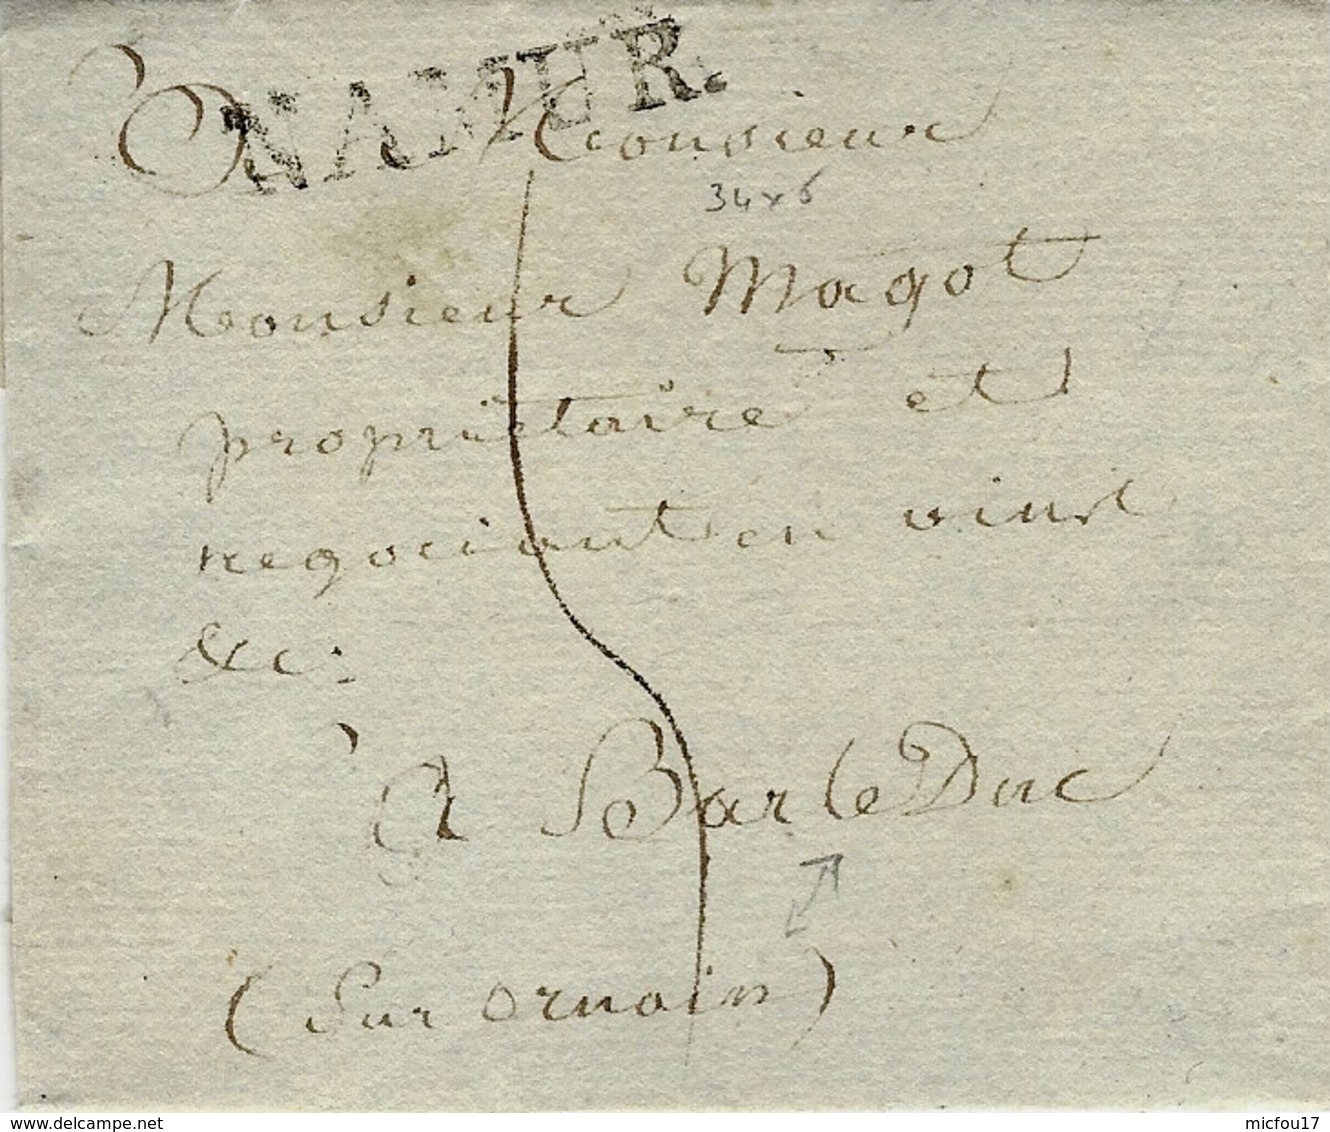 NAMUR.
Monsieur
34x6
Monsieur Magot
propriëtaire et
negociant en vins
&c:
A Bar le Duc
(Sur ornain)
www.delcampe.net
micfou17